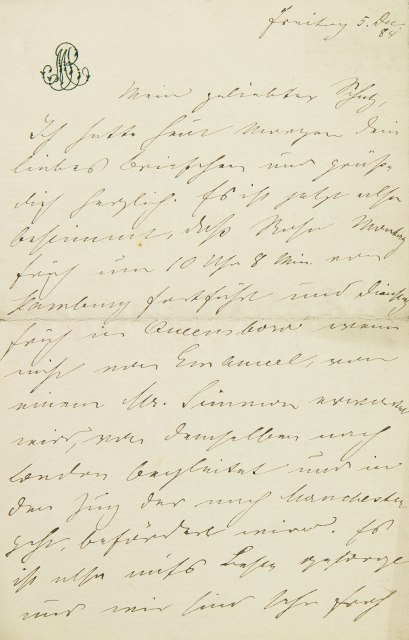 Freitag 5. Dec
84
Mein geliebter Schatz,
Ich hatte heut Morgen Dein
liebes Briefchen und grüße
dich herzlich. Es ist jetzt also
bestimmt, daß Rosa Montag
früh um 10 Uhr 8 Min von
Hamburg fortfährt und Dienstag
früh in Queensboro', wenn
nicht von Emanuel, von
einem Mr. Simmon erwartet
wird, von demselben nach
London begleitet und in
den Zug der nach Manchester
geht, befördert wird. Es
ist also aufs Beste gesorgt
und wir sind sehr froh